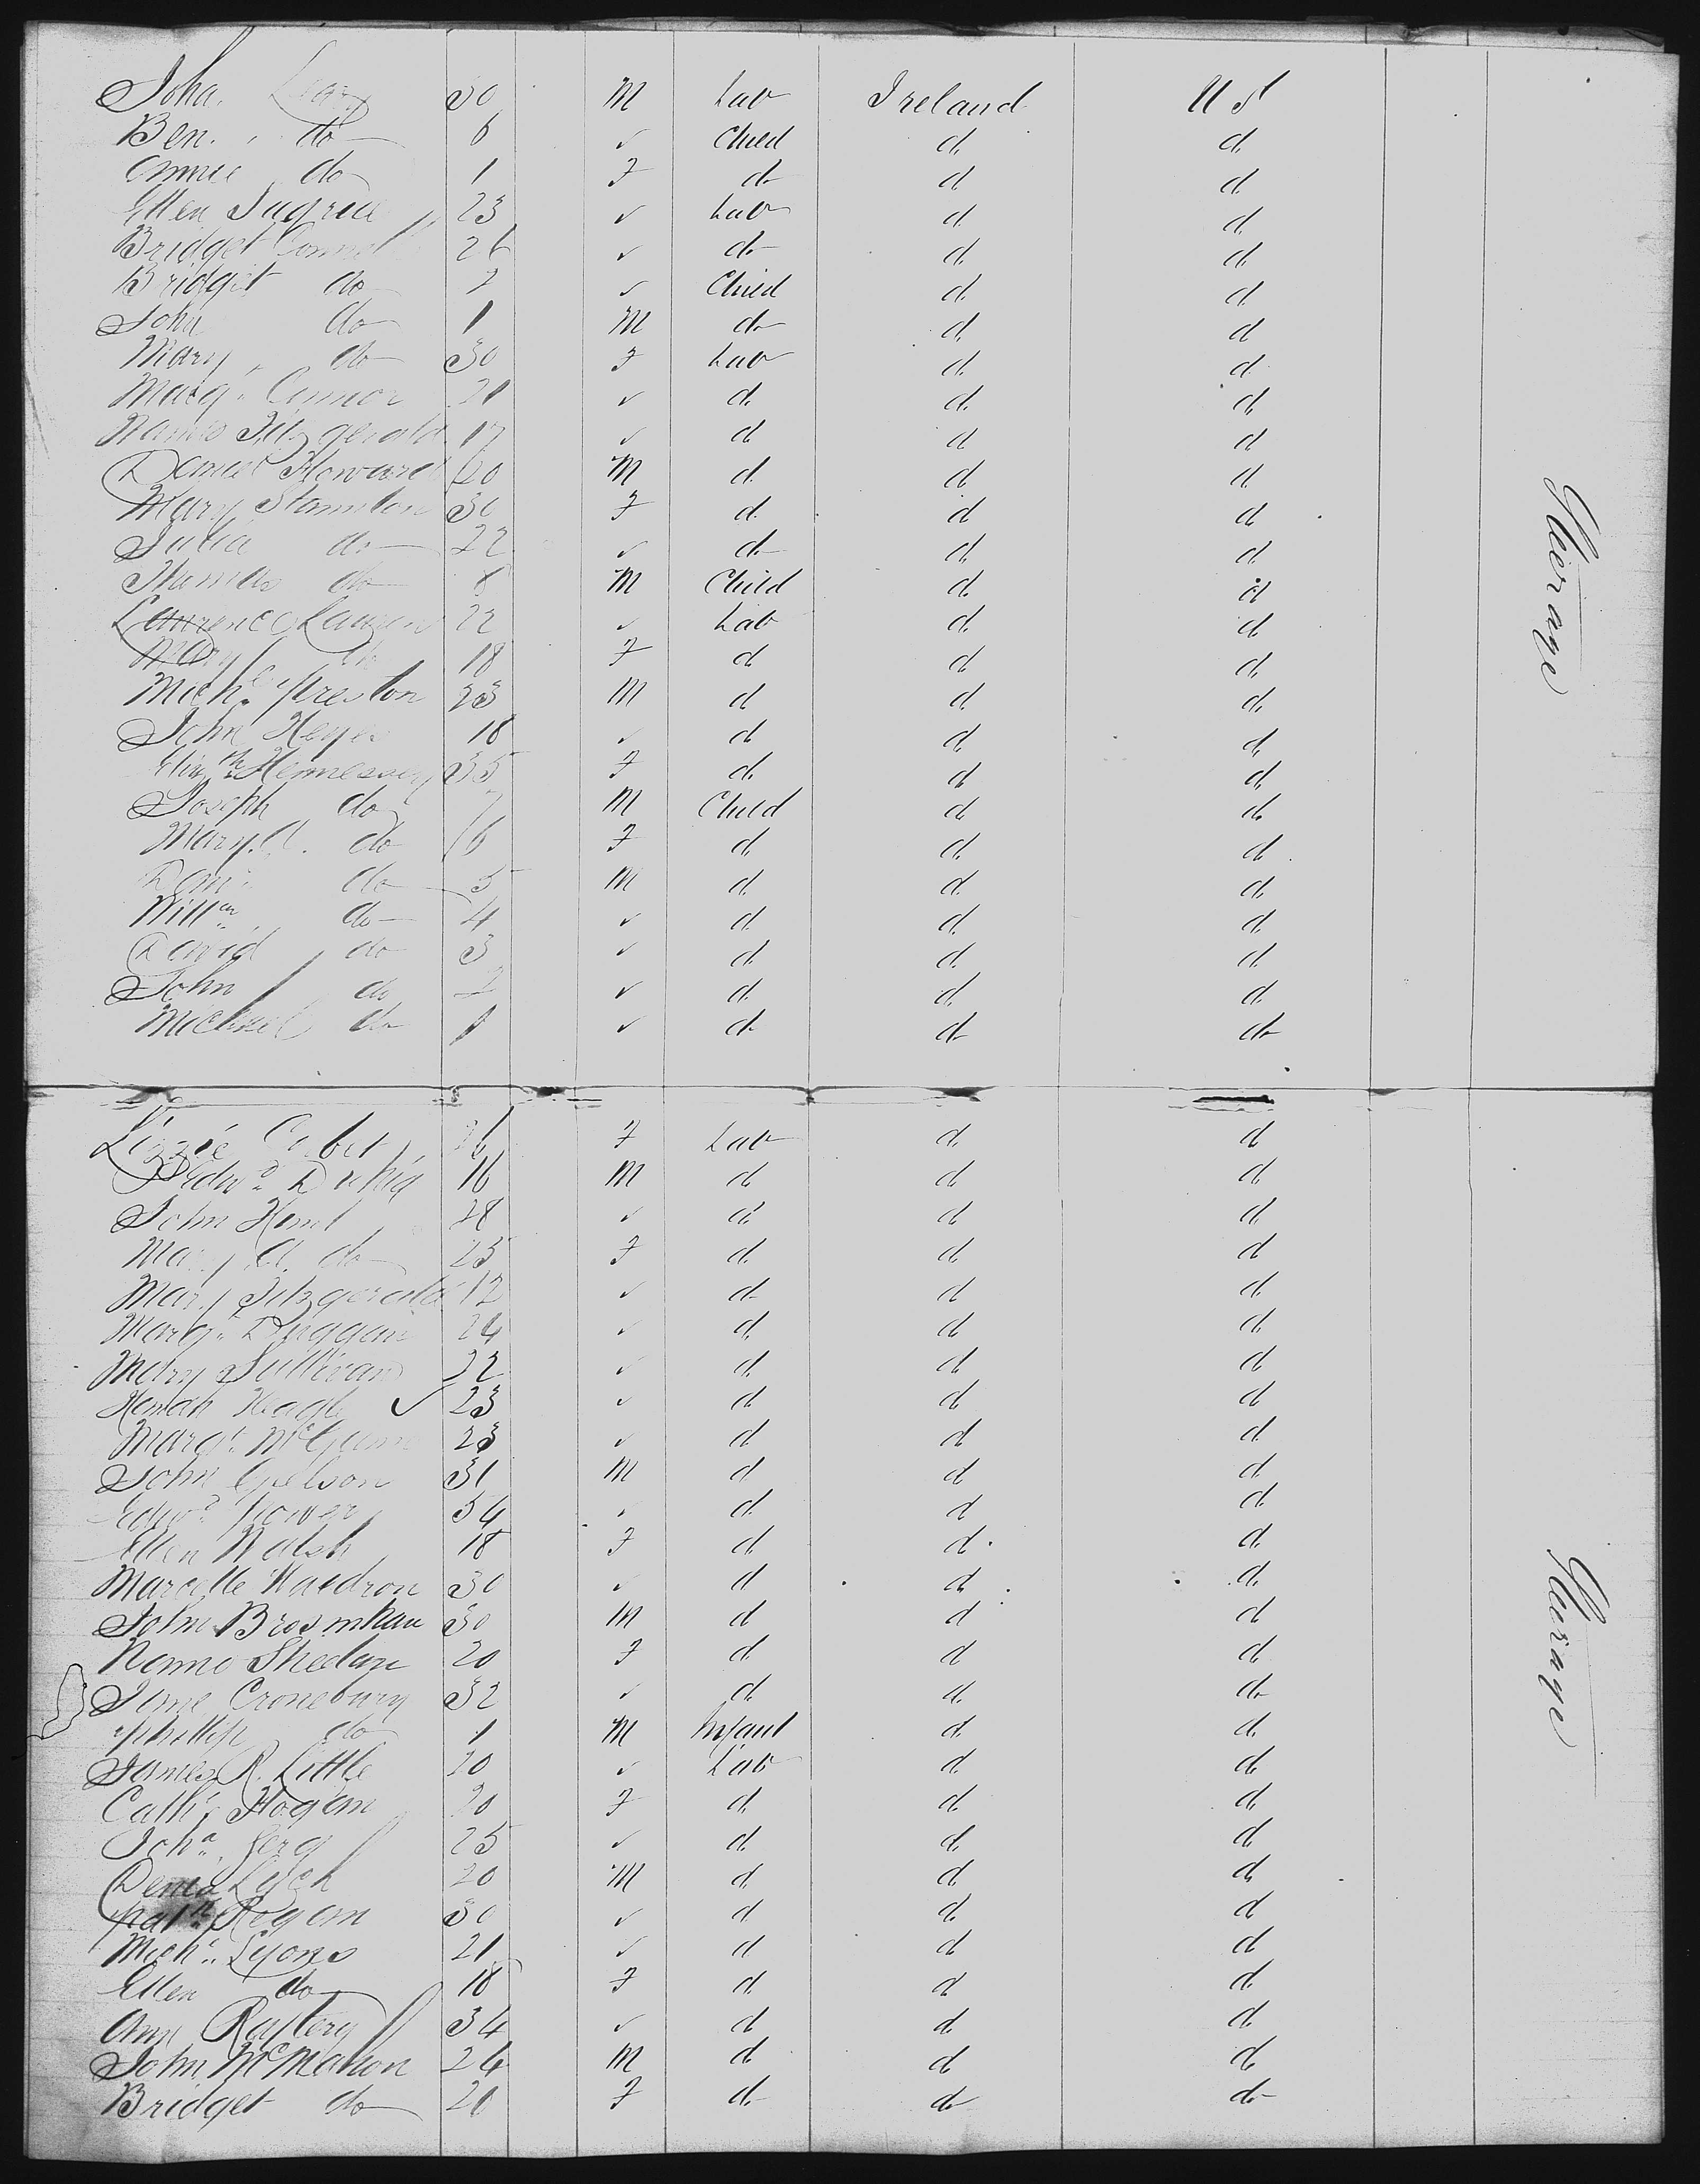 Joha. Leary 30 M Lab Ireland U S
Ben. do 6 ✓ Child d d
Annie do 1 F do d d
Ellen 23 ✓ Lab d d
Bridget Connell 26 ✓ do d d
Bridget do 7 ✓ Child d d
John do 1 M do d d
Mary do 30 F Lab d d
Marg. Connor 21 ✓ d d d
Fitzgerald 17 ✓ d d d
Daniel Howard 20 M d d d
Mary Staunton 30 F d d d
Julia do 22 ✓ do d d
Thomas do 8 M Child d d
Laurence 22 ✓ Lab d d
Mary do 18 F d d d
Michl. Preston 23 M d d d
John Keyes 18 ✓ d d d
Elizth. Hennessey 35 F d d d
Joseph do 7 M Child d do
Mary. A. do 6 F d d d
Danl. do 5 M d d d
Willm. do 4 ✓ d d d
David do 3 ✓ d d d
John do 2 ✓ d d d
Michael do 1 ✓ do do do
Steerage
Lizzie 26 F Lab d d
Edwd. 16 M d d d
John Hunt 28 ✓ d d d
Mary A. do 25 F d d d
Mary Fitzgerald 12 ✓ d d d
Margt. Duggan 24 ✓ d d d
Mary Sullivan 22 ✓ d d d
Hanah ✓ 23 ✓ d d d
Margt. 23 ✓ d d d
John Gelson 31 M d d d
Edwd. Power 54 ✓ d d d
Ellen Walsh 18 F d d d
Marcelle Waldron 30 ✓ d d d
John Brosnihan 30 M d d d
Nanno Shedan 20 F d d d
Jane Cronebury 32 ✓ d d do
Phillip do 1 M Infant d d
James R. Little 20 ✓ Lab d d
Cathe. Hogan 20 F d d d
Joha. 25 ✓ d d d
Denis 20 M d d d
Patk. Rogan 30 ✓ d d d
Michl. Lyons 21 ✓ d d d
Ellen do 18 F d d d
Ann Raftery 34 ✓ d d d
John McMahon 24 M d d d
Bridget do 20 F do do do
Steerage